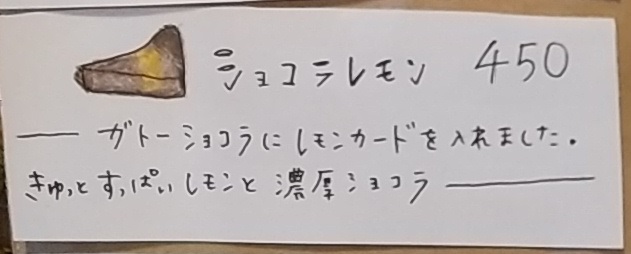 ショコラレモン 450
ガトーショコラにレモンカードを入れました。
きゅっとすっぱいレモンと濃厚ショコラ